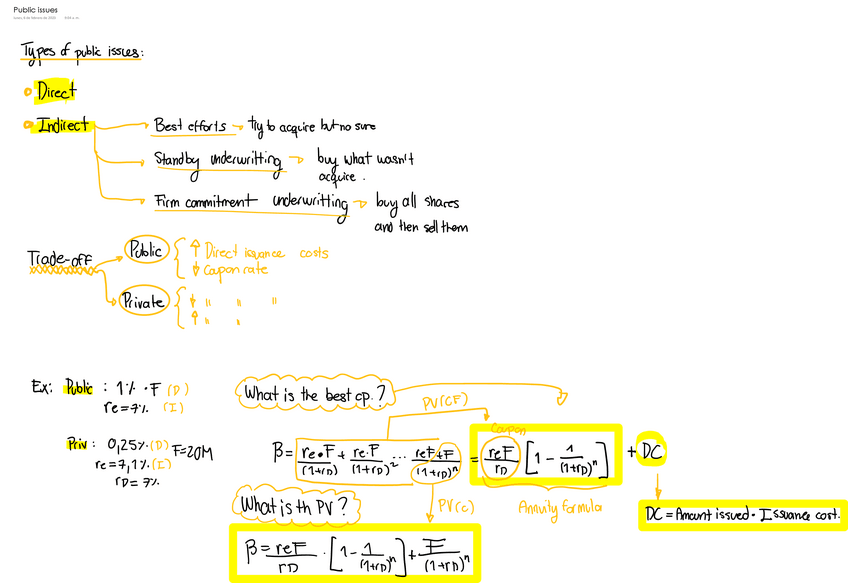 Public issues
Types of public issues:
Direct
Indirect
Best efforts → try to acquire but no sure
Standby underwritting → buy what wasn't
acquire.
Firm commitment underwritting → buy all shares
and then sell them
Trade-off
Public
↑ Direct issuance costs
↓ Capon rate
Private
↓ " " "
↑ " "
Ex: Public : 1% · F (D)
re = 7% (I)
Priv : 0,25% (D) F = 20M
re = 7,1% (I)
rD = 7%
What is the best cp.?
PV(CF)
Coupon
β = re·F/(1+rD) + re·F/(1+rD)² ... reF+F/(1+rD)ⁿ = reF/rD [1 - 1/(1+rD)ⁿ] + DC
Annuity formula
PV(c)
DC = Amount issued · Issuance cost.
What is th PV?
β = reF/rD · [1 - 1/(1+rD)ⁿ] + F/(1+rD)ⁿ